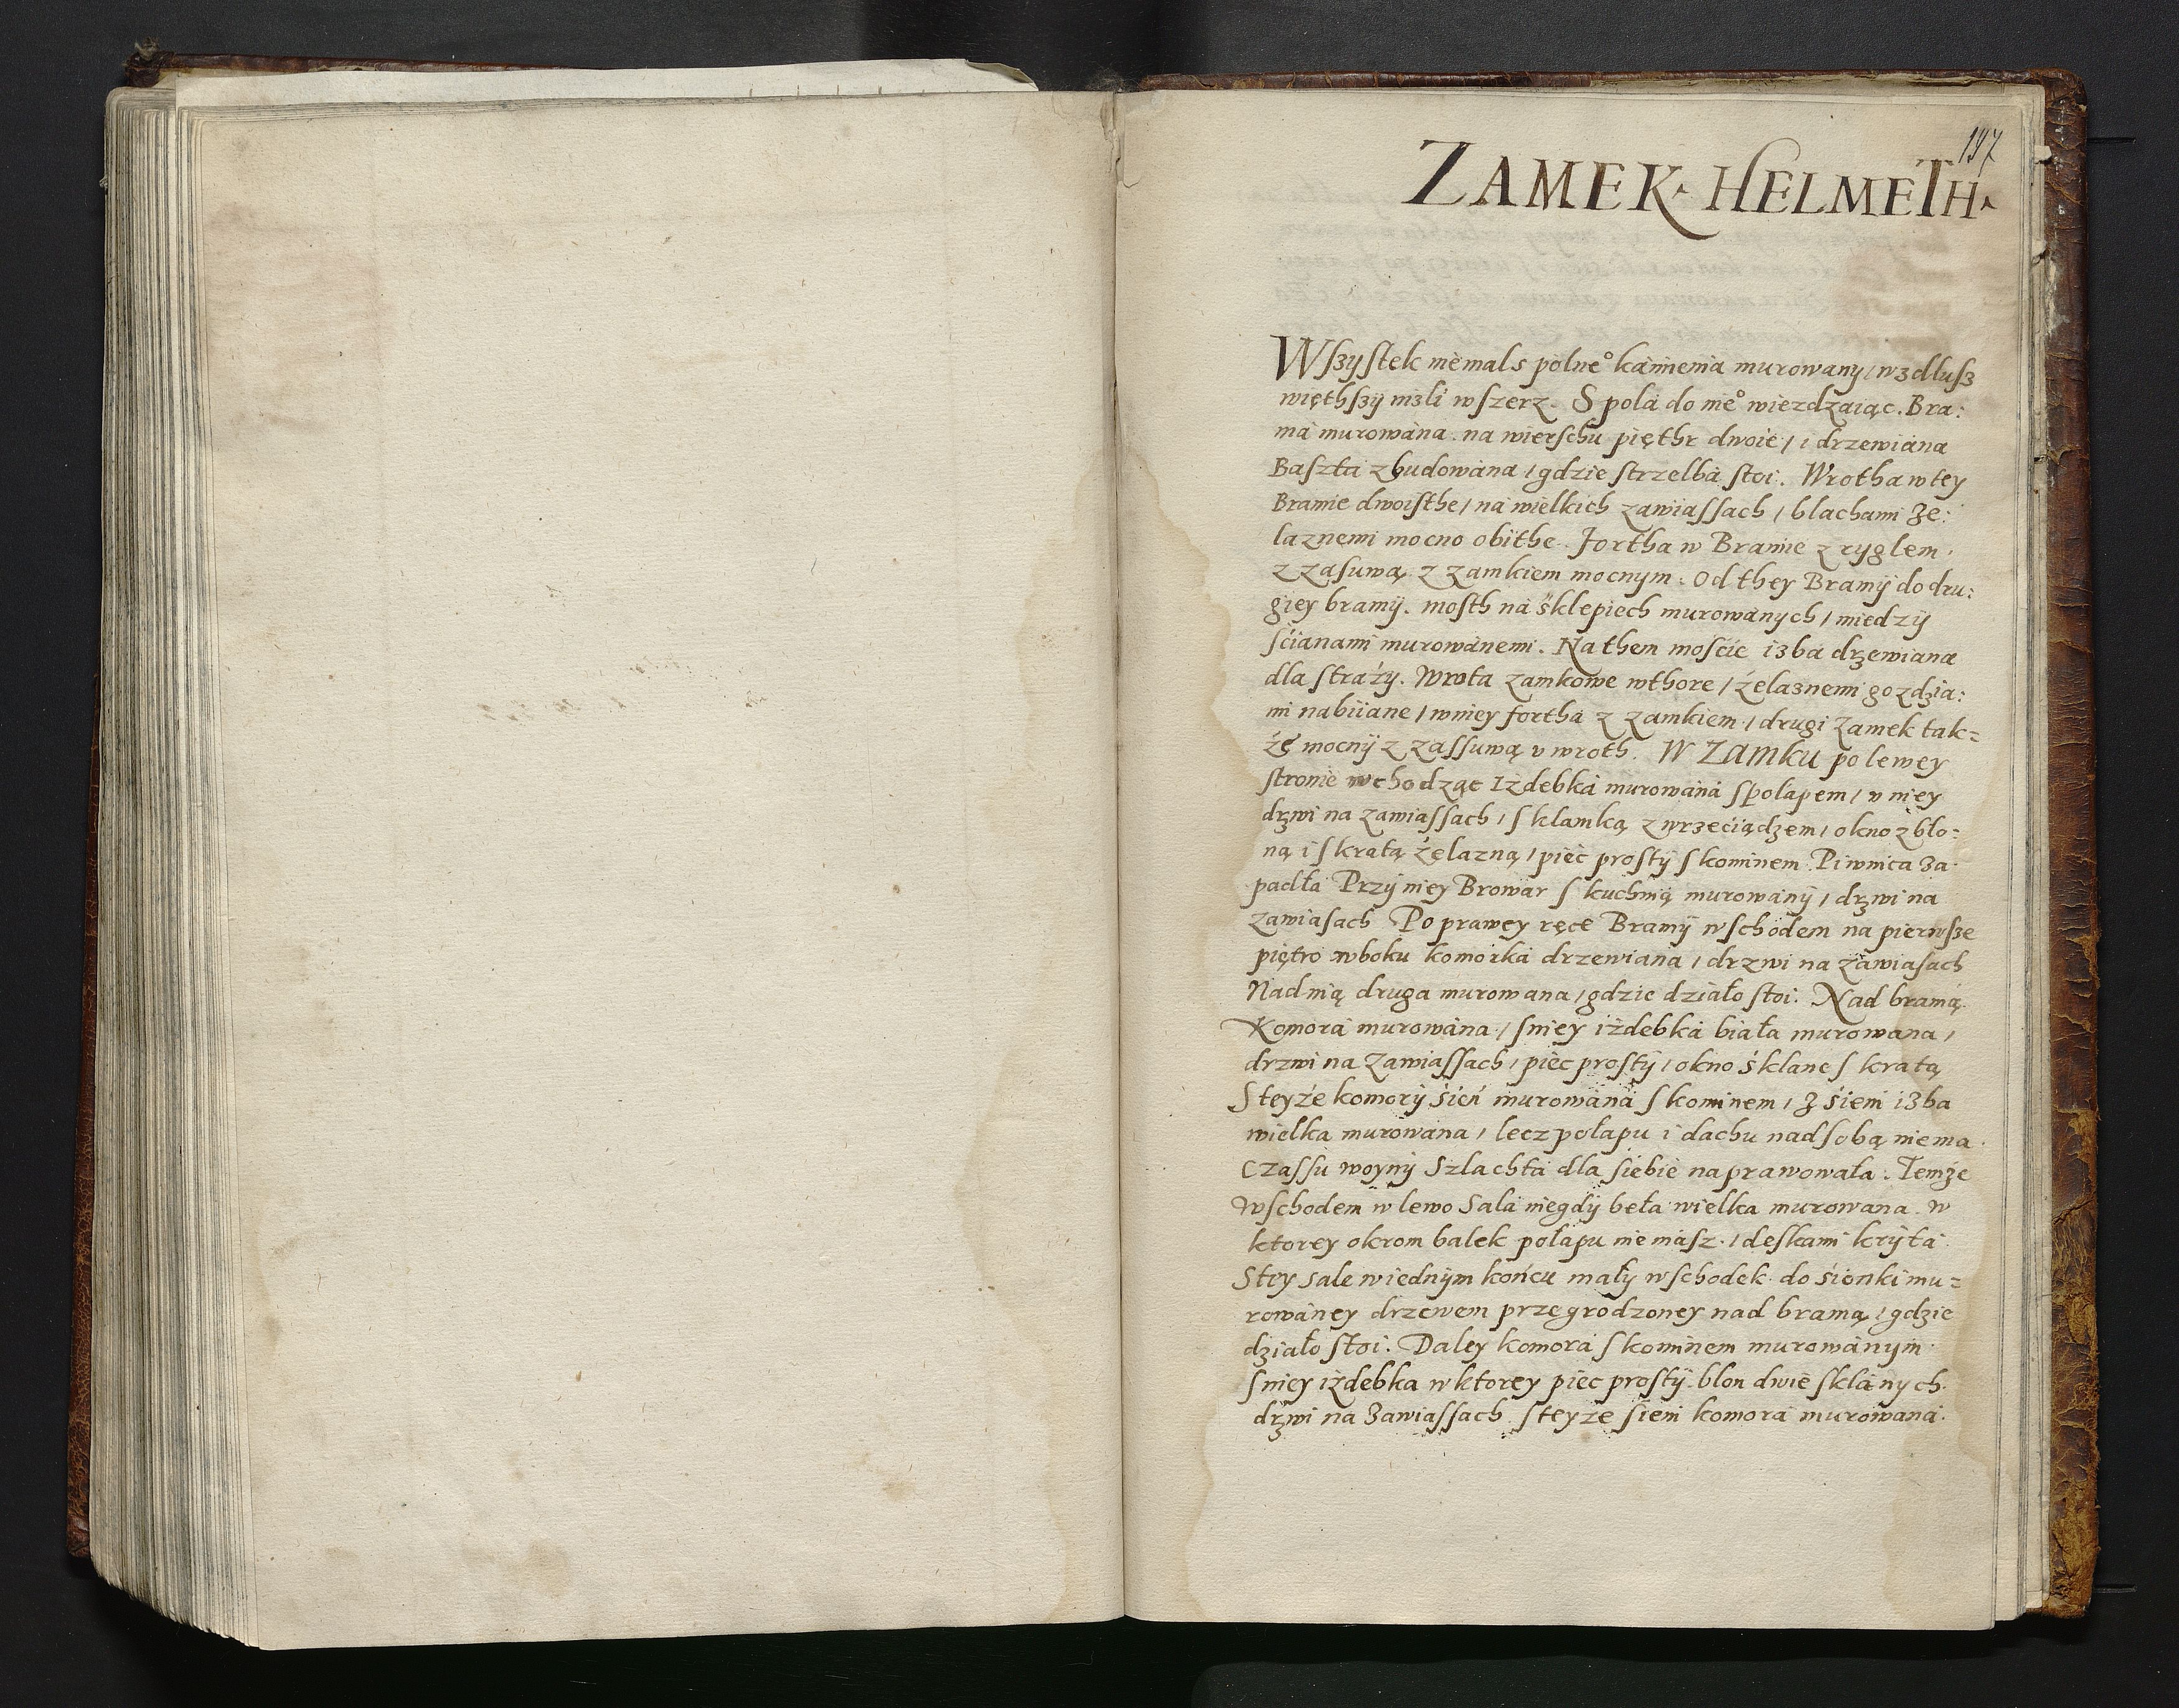 197
ZAMEK HELMETH
Wſzyſtek niemals polne° kamienia murowany / wzdluſz
więthſzÿ nizli wſzerz. S pola do nie° wiezdzaiąc. Bra:
ma murowána. na wierſchu pięthr dwoie / i drzewiána
Baſztá zbudowána / gdzie strzelbá ſtoi. Wrotha w tey
Bramie dwoiſthe / ná wielkich zawiáſſach / blachami że:
laznemi mocno obithe. Fortha w Bramie z ryglem.
z zaſuwą z zamkiem mocnym. Od they Bramÿ do dru:
giey bramÿ. moſth ná sklepiech murowánych / miedzÿ
ściánami murowánemi. Na them moſcie izba drzewiana
dla ſtraży. Wrota zamkowe wthore / żelaznemi gozdzia:
mi nabiiane / w niey forthá z zamkiem / drugi zamek tak=
żę mocnÿ z zaſſuwą v wroth. W ZAMKU po lewey
stronie wchodząc Izdebká murowána ſ połapem / v niey
drzwi na zawiaſſach / ſ klamką z wrzeciądzem / okno z bło=
ną i ſ kratą żelazną / piec proſtÿ ſ kominem. Piwnica za
padła Przÿ niey Browar ſ kuchnią murowánÿ / drzwi na
zawiaſach Po prawey ręce Bramÿ wſchodem na pierwſze
piętro w boku komorká drzewiana / drzwi na zawiaſach
Nad nią druga murowana / gdzie działo ſtoi. Nad bramą
Komorá murowána / ſ niey izdebká biała murowana /
drzwi na zawiaſſach / piec proſtÿ / okno śklane ſ kratą
S teyże komorÿ śień murowána ſ kominem / z śieni izba
wielka murowána / lecz połapu i dachu nad ſobą nie ma.
Czaſſu woynÿ Szlachtá dla ſiebie naprawowała. Temże
Wſchodem w lewo Sala niegdÿ beła wielka murowana. w
ktorey okrom balek połapu nie máſz. / deſkami krÿtá
S tey sale w iednÿm końcu małÿ wſchodek do śionki mu=
rowáney drzewem przegrodzoney nad bramą / gdzie
działo ſtoi. Daley komorá ſ kominem murowánym
ſ niey izdebka w ktorey piec proſtÿ. blon dwie ſklánych.
drzwi na zawiaſſach ſ teyże ſieni komorá murowaná.